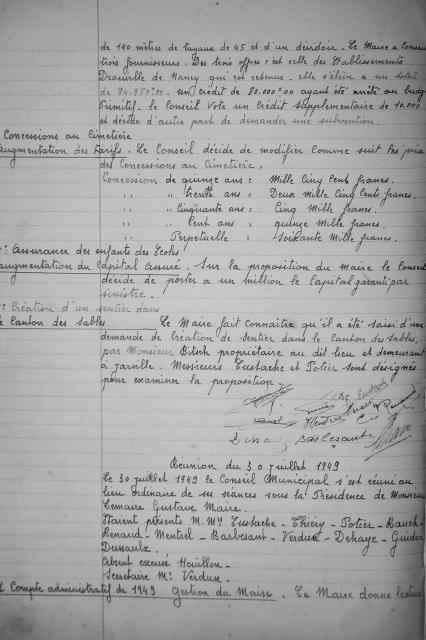 de 140 mètres de tuyaux de 45 et d'un dévidoir. Le Maire a consulté
trois fournisseurs. Des trois offres c'est celle des Etablissements
de Nancy qui est retenue. elle s'élève a un total
de 84.950.00. un crédit de 80.000.00 ayant été au budget
Primitif. le Conseil Vote un Crédit supplémentaire de 10.000
et décide d'autre part de demander une subvention.
Concessions au Cimetière
augmentation des tarifs. Le Conseil décide de modifier comme suit les prix
des Concessions au Cimetière.
Concession de quinze ans : Mille Cinq Cents francs.
" " trente ans : Deux Mille Cinq Cents francs.
" " Cinquante ans : Cinq Mille francs.
" " Cent ans : quinze Mille francs.
" " Perpetuelle : Soixante Mille francs.
: Assurance des enfants des Ecoles
augmentation du Capital assuré. Sur la proposition du Maire le Conseil
décide de porter a un million le Capital garanti par
sinistre.
: Création d'un sentier dans
le Canton des Sables Le Maire fait connaitre qu'il a été saisi d'une
demande de Création de sentier dans le Canton des Sables,
par Monsieur Bitsch propriétaire au dit lieu et demeurant
à Jarville. Messieurs Eustache et Potier sont désignés
pour examiner la proposition.
Eustache
Dehaye Barbesant
Réunion du 30 juillet 1949
Le 30 juillet 1949 le Conseil Municipal s'est réuni au
lieu ordinaire de ses séances sous la Présidence de Monsieur
Lemaire Gustave Maire.
Etaient présents M.M. Eustache - Thiéry - Potier - Rauch -
Renard - Mentrel - Barbesant - Verdun - Dehaye - Guidon
Dussaulx.
Absent excusé Houillon.
Secretaire Mr Verdun.
Compte administratif de 1949 Gestion du Maire. Le Maire donne lecture